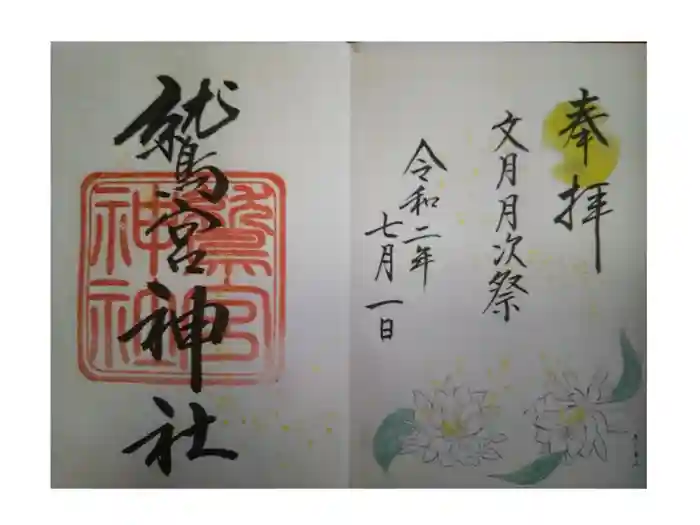 奉拝
文月月次祭
令和二年
七月一日
鷲宮神社
鷲宮
神社